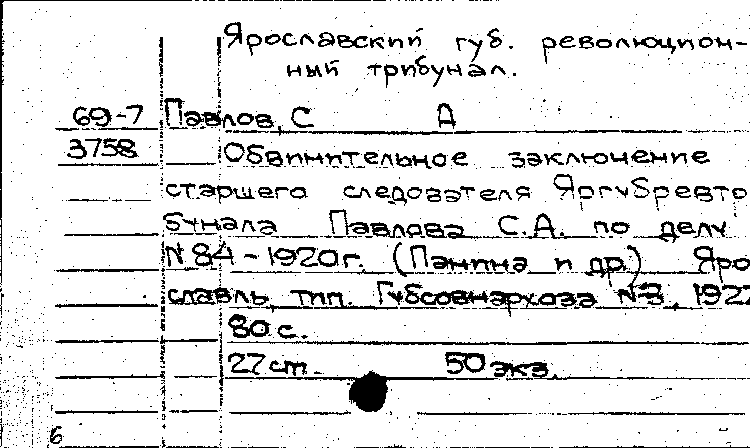 Ярославский губ. революцион-
ный трибунал.
69-7 Павлов, С А
3758 Обвинительное заключение
старшего следователя Яргубревтр
бунала Павлова С.А. по делу
N 84 - 1920 г. (Панина и др.) Яро
славль, тип. Губсовнархоза №3, 192
80 с.
27 см. 50 экз.
6